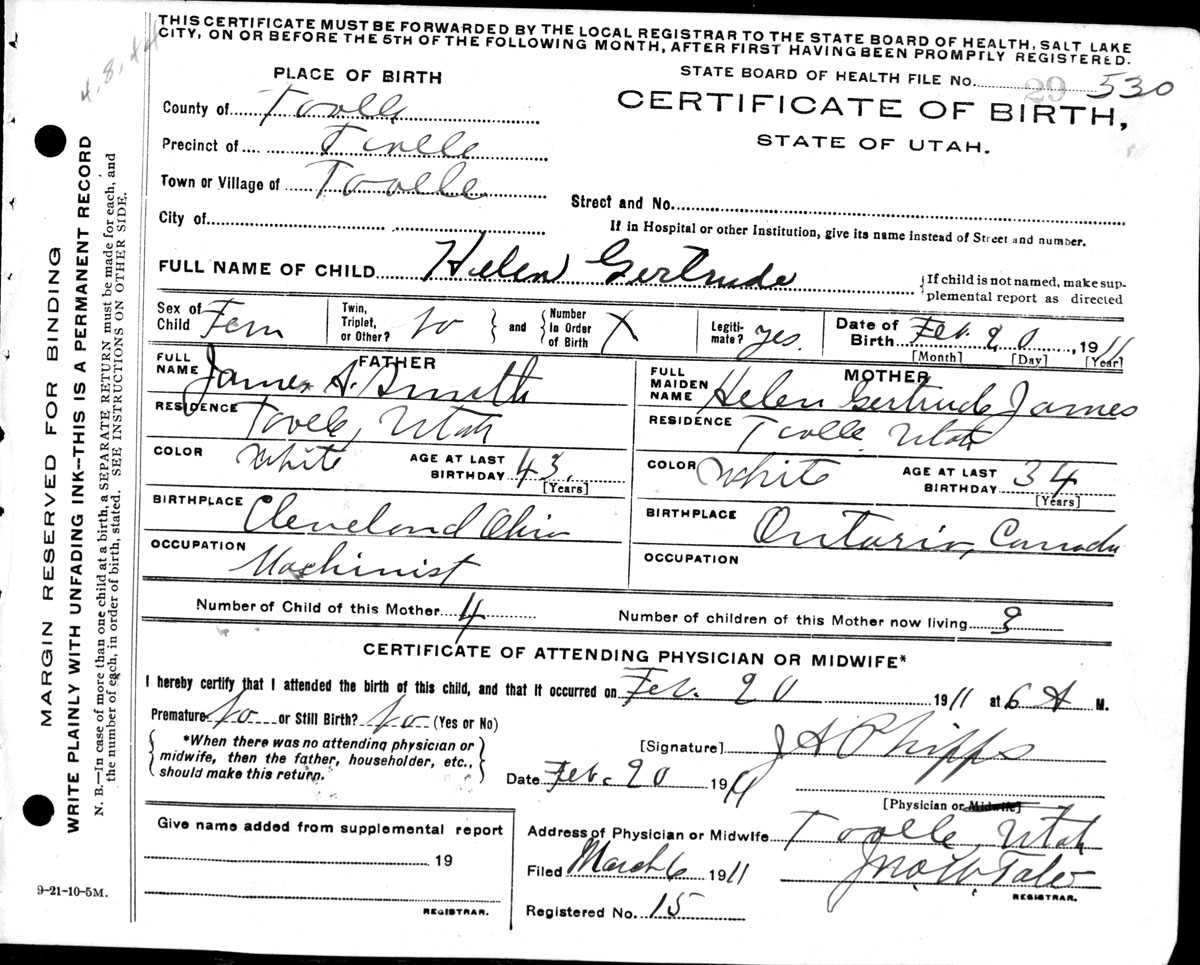 THIS CERTIFICATE MUST BE FORWARDED BY THE LOCAL REGISTRAR TO THE STATE BOARD OF HEALTH, SALT LAKE
CITY, ON OR BEFORE THE 5TH OF THE FOLLOWING MONTH, AFTER FIRST HAVING BEEN PROMPTLY REGISTERED.
4, 8, 44
PLACE OF BIRTH
STATE BOARD OF HEALTH FILE No. 29 530
CERTIFICATE OF BIRTH,
STATE OF UTAH.
County of Tooele
Precinct of Tooele
Town or Village of Tooele
Street and No.
City of
If in Hospital or other Institution, give its name instead of Street and number.
FULL NAME OF CHILD Helen Gertrude
{If child is not named, make sup-
plemental report as directed
Sex of Child Fem
Twin, Triplet, or Other? No } and { Number In Order of Birth X
Legiti-mate? yes.
Date of Birth Feb 20, 1911
[Month] [Day] [Year]
FATHER
FULL NAME James A. Smith
RESIDENCE Tooele, Utah
COLOR White AGE AT LAST BIRTHDAY 43
[Years]
BIRTHPLACE Cleveland Ohio
OCCUPATION Machinist
MOTHER
FULL MAIDEN NAME Helen Gertrude James
RESIDENCE Tooele Utah
COLOR White AGE AT LAST BIRTHDAY 34
[Years]
BIRTHPLACE Ontario, Canada
OCCUPATION
Number of Child of this Mother 4 Number of children of this Mother now living 3
CERTIFICATE OF ATTENDING PHYSICIAN OR MIDWIFE*
I hereby certify that I attended the birth of this child, and that it occurred on Feb. 20 1911 at 6 A M.
Premature No or Still Birth? No (Yes or No)
{ *When there was no attending physician or
midwife, then the father, householder, etc.,
should make this return. }
[Signature] J A Phipps
Date Feb. 20 1911
[Physician or Midwife]
Give name added from supplemental report
19
REGISTRAR.
Address of Physician or Midwife Tooele, Utah
Filed March 6 1911 Jno. W. Tate
REGISTRAR.
Registered No. 15
MARGIN RESERVED FOR BINDING
WRITE PLAINLY WITH UNFADING INK--THIS IS A PERMANENT RECORD
N. B.—In case of more than one child at a birth, a SEPARATE RETURN must be made for each, and
the number of each, in order of birth, stated. SEE INSTRUCTIONS ON OTHER SIDE.
9-21-10-5M.